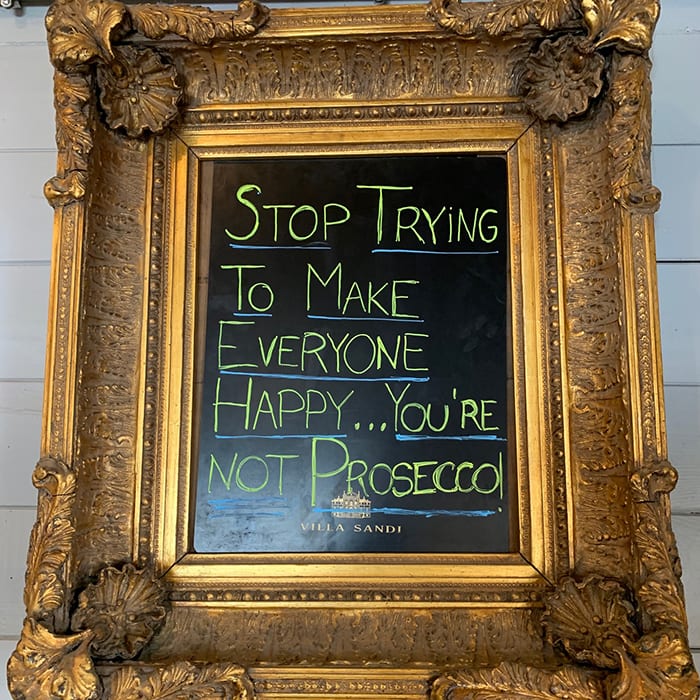 STOP TRYiNG
TO MAKE
EVERYONE
HAPPY...YOU'RE
NOT PROSECCO!
VILLA SANDI